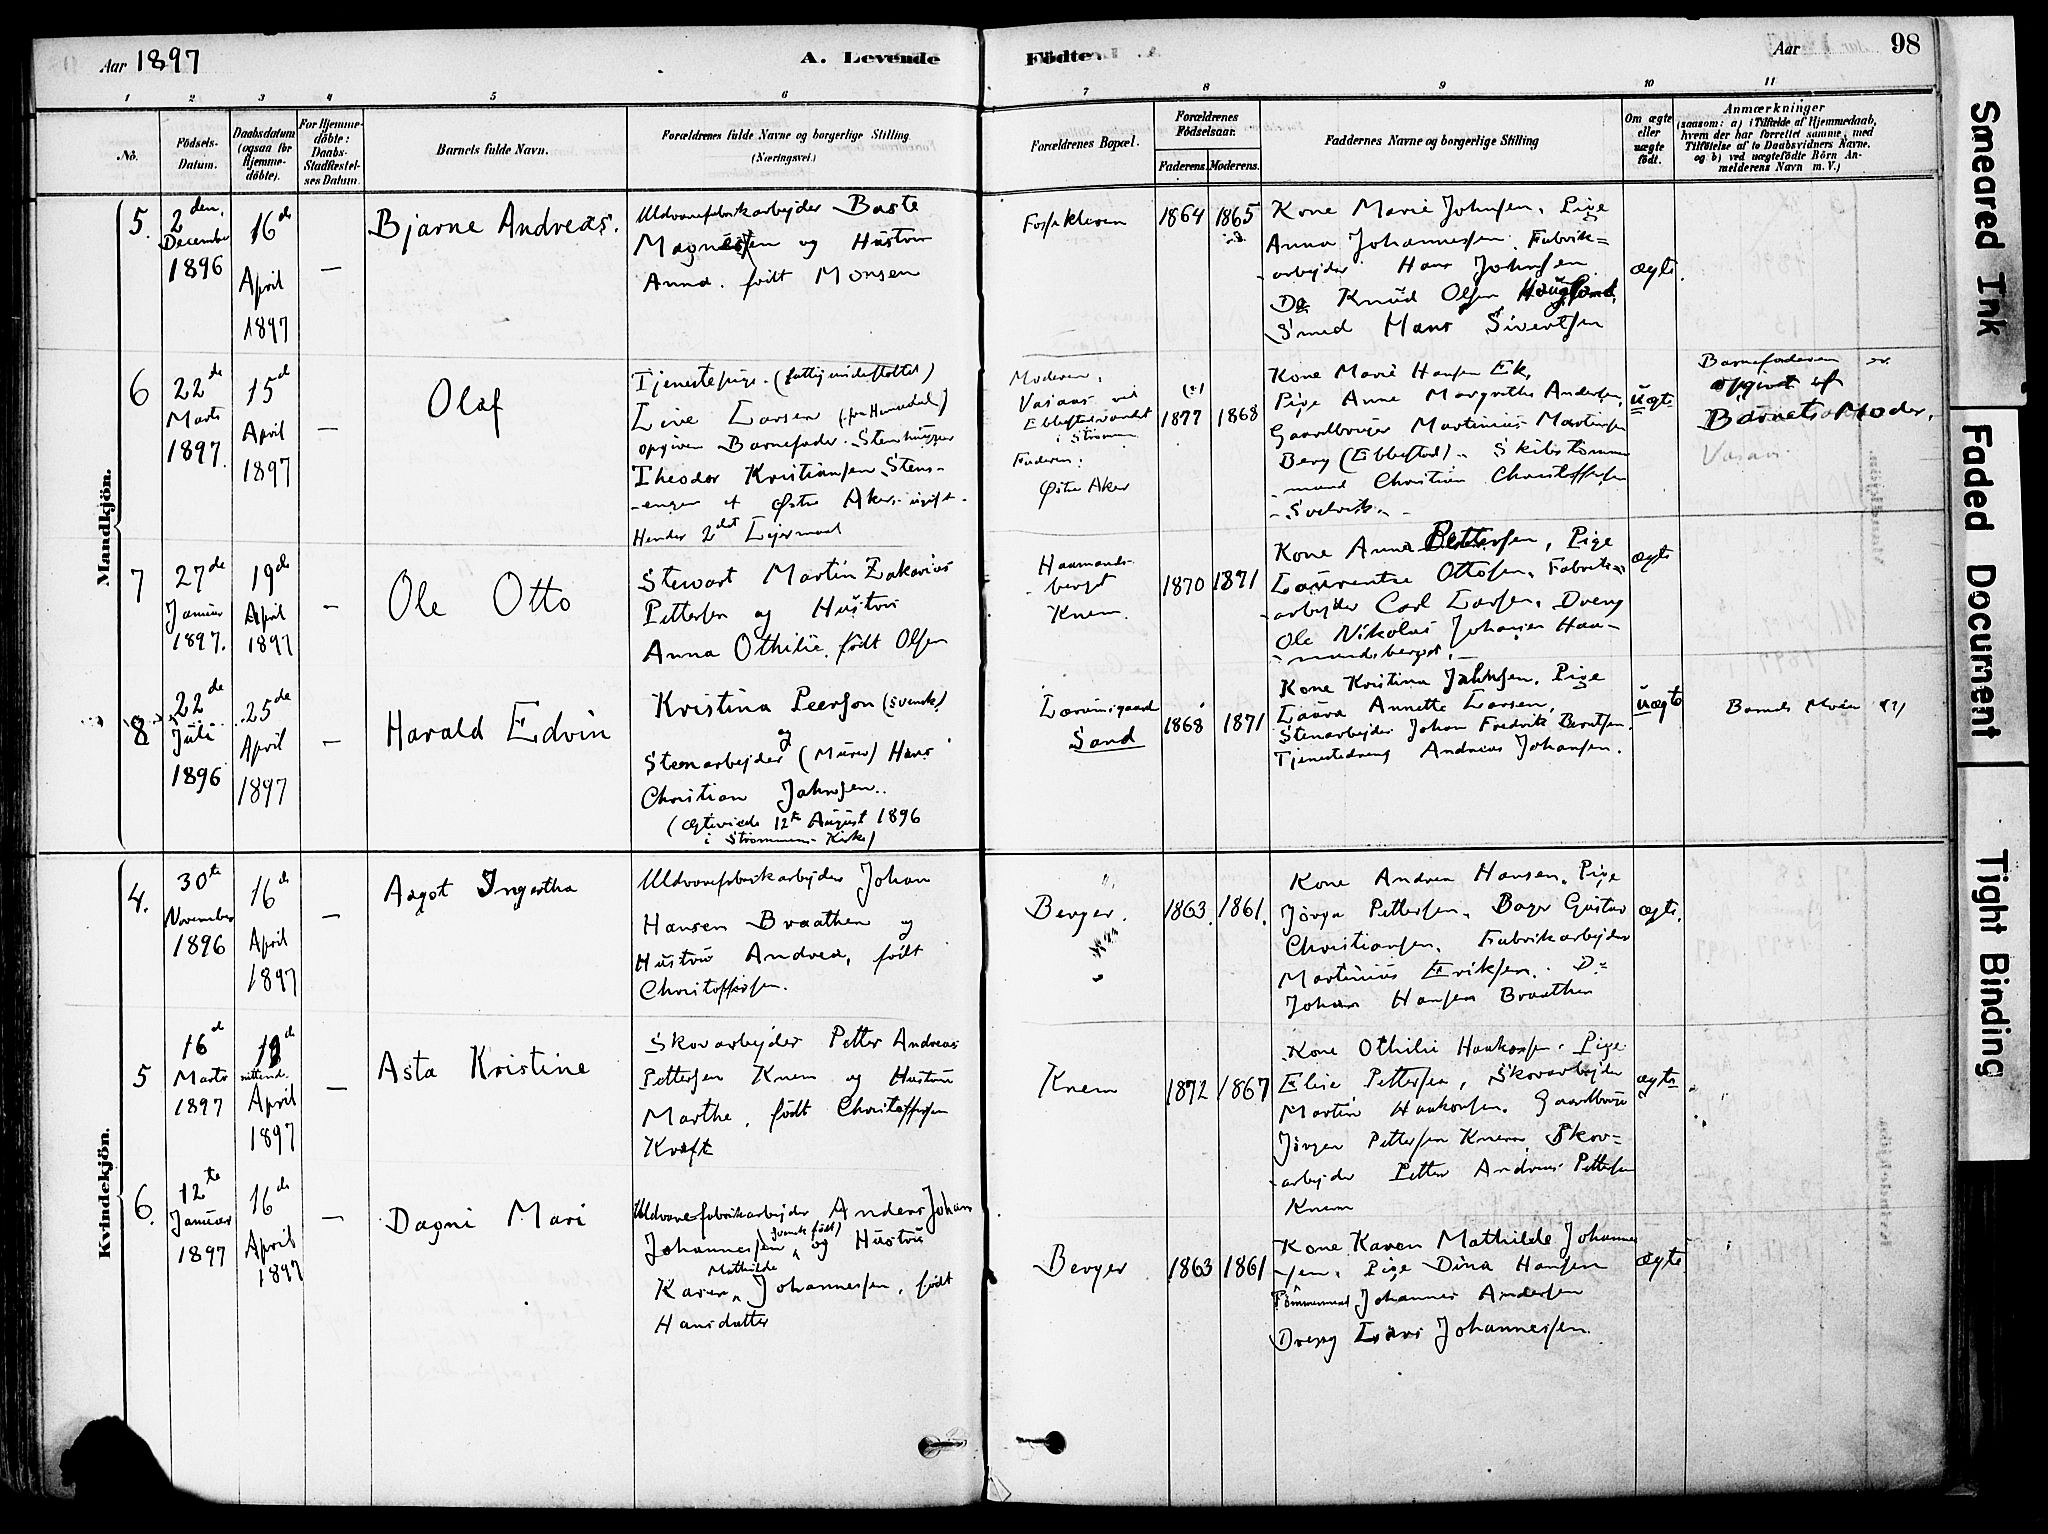 Aar 1897
A. Levende
Födte.
Aar
98
1 2 3 4 5 6 7 8 9 10 11
No.
Födsels-Datum.
Daabsdatum (ogsaa for Hjemme-döbte).
For Hjemme-döbte: Daabs-Stadfæstel-ses Datum.
Barnets fulde Navn.
Forældrenes fulde Navne og borgerlige Stilling.
(Næringsvei.)
Forældrenes Bopæl.
Forældrenes Födselsaar.
Faderens. Moderens.
Faddernes Navne og borgerlige Stilling
Om ægte eller uægte födt.
Anmærkninger
(saasom: a) i Tilfælde af Hjemmedaab,
hvem der har forrettet samme, med
Tilföielse af to Daabsvidners Navne.
og b) ved uægtefödte Börn An-
melderens Navn m. V.)
Mandkjön.
5.
2den December 1896
16de April 1897
—
Bjarne Andreas.
Uldvarefabrikarbejder Baste
Magnussen og Hustru
Anna. født Monsen
Fossekleven
1864
1865
Kone Marie Johnsen. Pige
Anna Johannessen. Fabrik=
-arbejder Hans Johnsen
Do Knud Olsen Haugland,
Smed Hans Sivertsen
ægte.
6
22de Marts 1897.
15de April 1897
—
Olaf
Tjenestepige. (fattigunderstøttet)
Live Larsen (fra Hemsedal)
opgiven Barnefader: Stenhugger
Theodor Kristiansen Stens-
-engen af Østre Aker. ugift.
Hendes 2det Lejermaal
Moderen:
Vasaas ved
Ebbestadvandet
i Strømm
Faderen:
Østre Aker
1877
1868
Kone Marie Hansen Ek,
Pige Anne Margrethe Andersen,
Gaardbruger Martinius Martinsen
Berg (Ebbestad).. Skibstømmer
-mand Christian Christoffersen
- Svelvik. -
uægte
Barnefaderen er
opgivet af
Barnets Moder.
Vasaas.
7
27de Januar 1897.
19de April 1897
—
Ole Otto
Stewart Martin Zakarias
Pettersen og Hustru
Anna Othilie. født Olsen
Haamands-
-berget
Knem.
1870
1871
Kone Anna Pettersen, Pige
Laurentse Ottosen, Fabrik=
-arbejder Carl Larsen, Dreng
Ole Nikolai Johansen Haa-
-mandsberget. -
ægte
8
22de Juli 1896
25de April 1897
—
Harald Edvin
Kristina Peerson (svensk)
og
Stenarbejder (Murer) Hans
Christian Johnsen..
(ægteviede 12te August 1896
i Strømmens Kirke)
Sand
1868
1871
Kone Kristina Johnsen. Pige
Laura Annette Larsen,
Stenarbejder Johan Fredrik Berntsen.
Tjenestedreng Andreas Johansen.
uægte
Barnets Moder
Kvindekjön.
4.
30te November 1896
16de April 1897
—
Aagot Ingertha
Uldvarefabrikarbejder Johan
Hansen Braathen og
Hustru Andrea, født
Christoffersen.
Berger.
1863
1861.
Kone Andrea Hansen. Pige
Jørga Pettersen. Bager Gustav
Christiansen. Fabrikarbejder
Martinius Eriksen. Do
Johan Hansen Braathen
ægte.
5
16de Marts 1897
19de nittende April 1897
—
Asta Kristine
Skovarbejder Petter Andreas
Pettersen Knem og Hustru
Marthe. født Christoffersen
Kraft
Knem
1872
1867
Kone Othilie Haakonsen. Pige
Elise Pettersen, Skovarbejder
Martin Haakonsen. Gaardbruger
Jørgen Pettersen Knem, Skov-
-arbejder Petter Andreas Pettersen
Knem
ægte
6.
12te Januar 1897
16de April 1897
—
Dagni Mari
Uldvarefabrikarbejder Anders Johan
Johannessen (svensk født) og Hustru
Karen Mathilde Johannessen, født
Hansdatter
Berger
1863
1861
Kone Karen Mathilde Johannes
-sen. Pige Dina Hansen
Tømmermand Johannes Andersen
Dreng Lars Johannessen.
ægte
Smeared Ink
Faded Document
Tight Binding